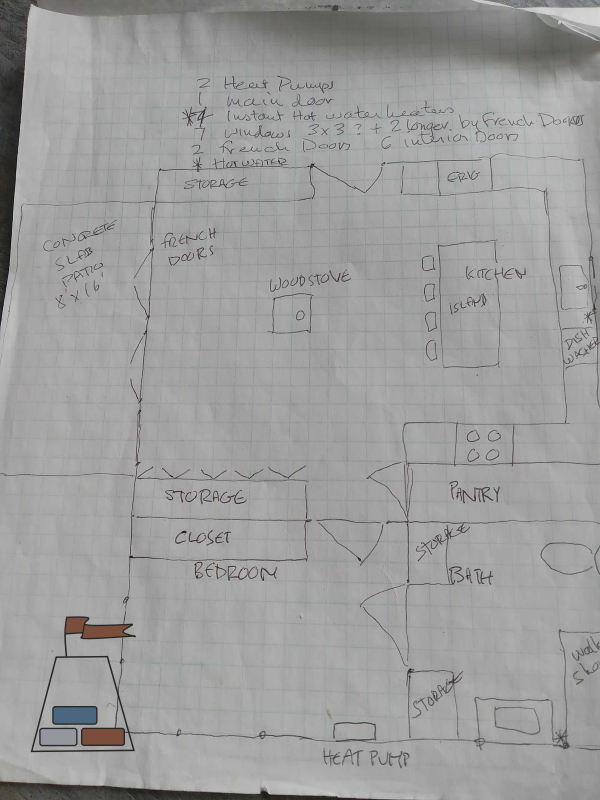 2 Heat Pumps
1 main door
*4 Instant Hot water heaters
7 windows 3x3 ? + 2 longer by French Doors
2 French Doors 6 interior Doors
* HOTWATER
STORAGE
FRIG
CONCRETE
SLAB
PATIO
8' x 16'
FRENCH
DOORS
WOODSTOVE
KITCHEN
ISLAND
*
DISH
WASHER
STORAGE
PANTRY
CLOSET
STORAGE
BEDROOM
BATH
STORAGE
HEAT PUMP
*